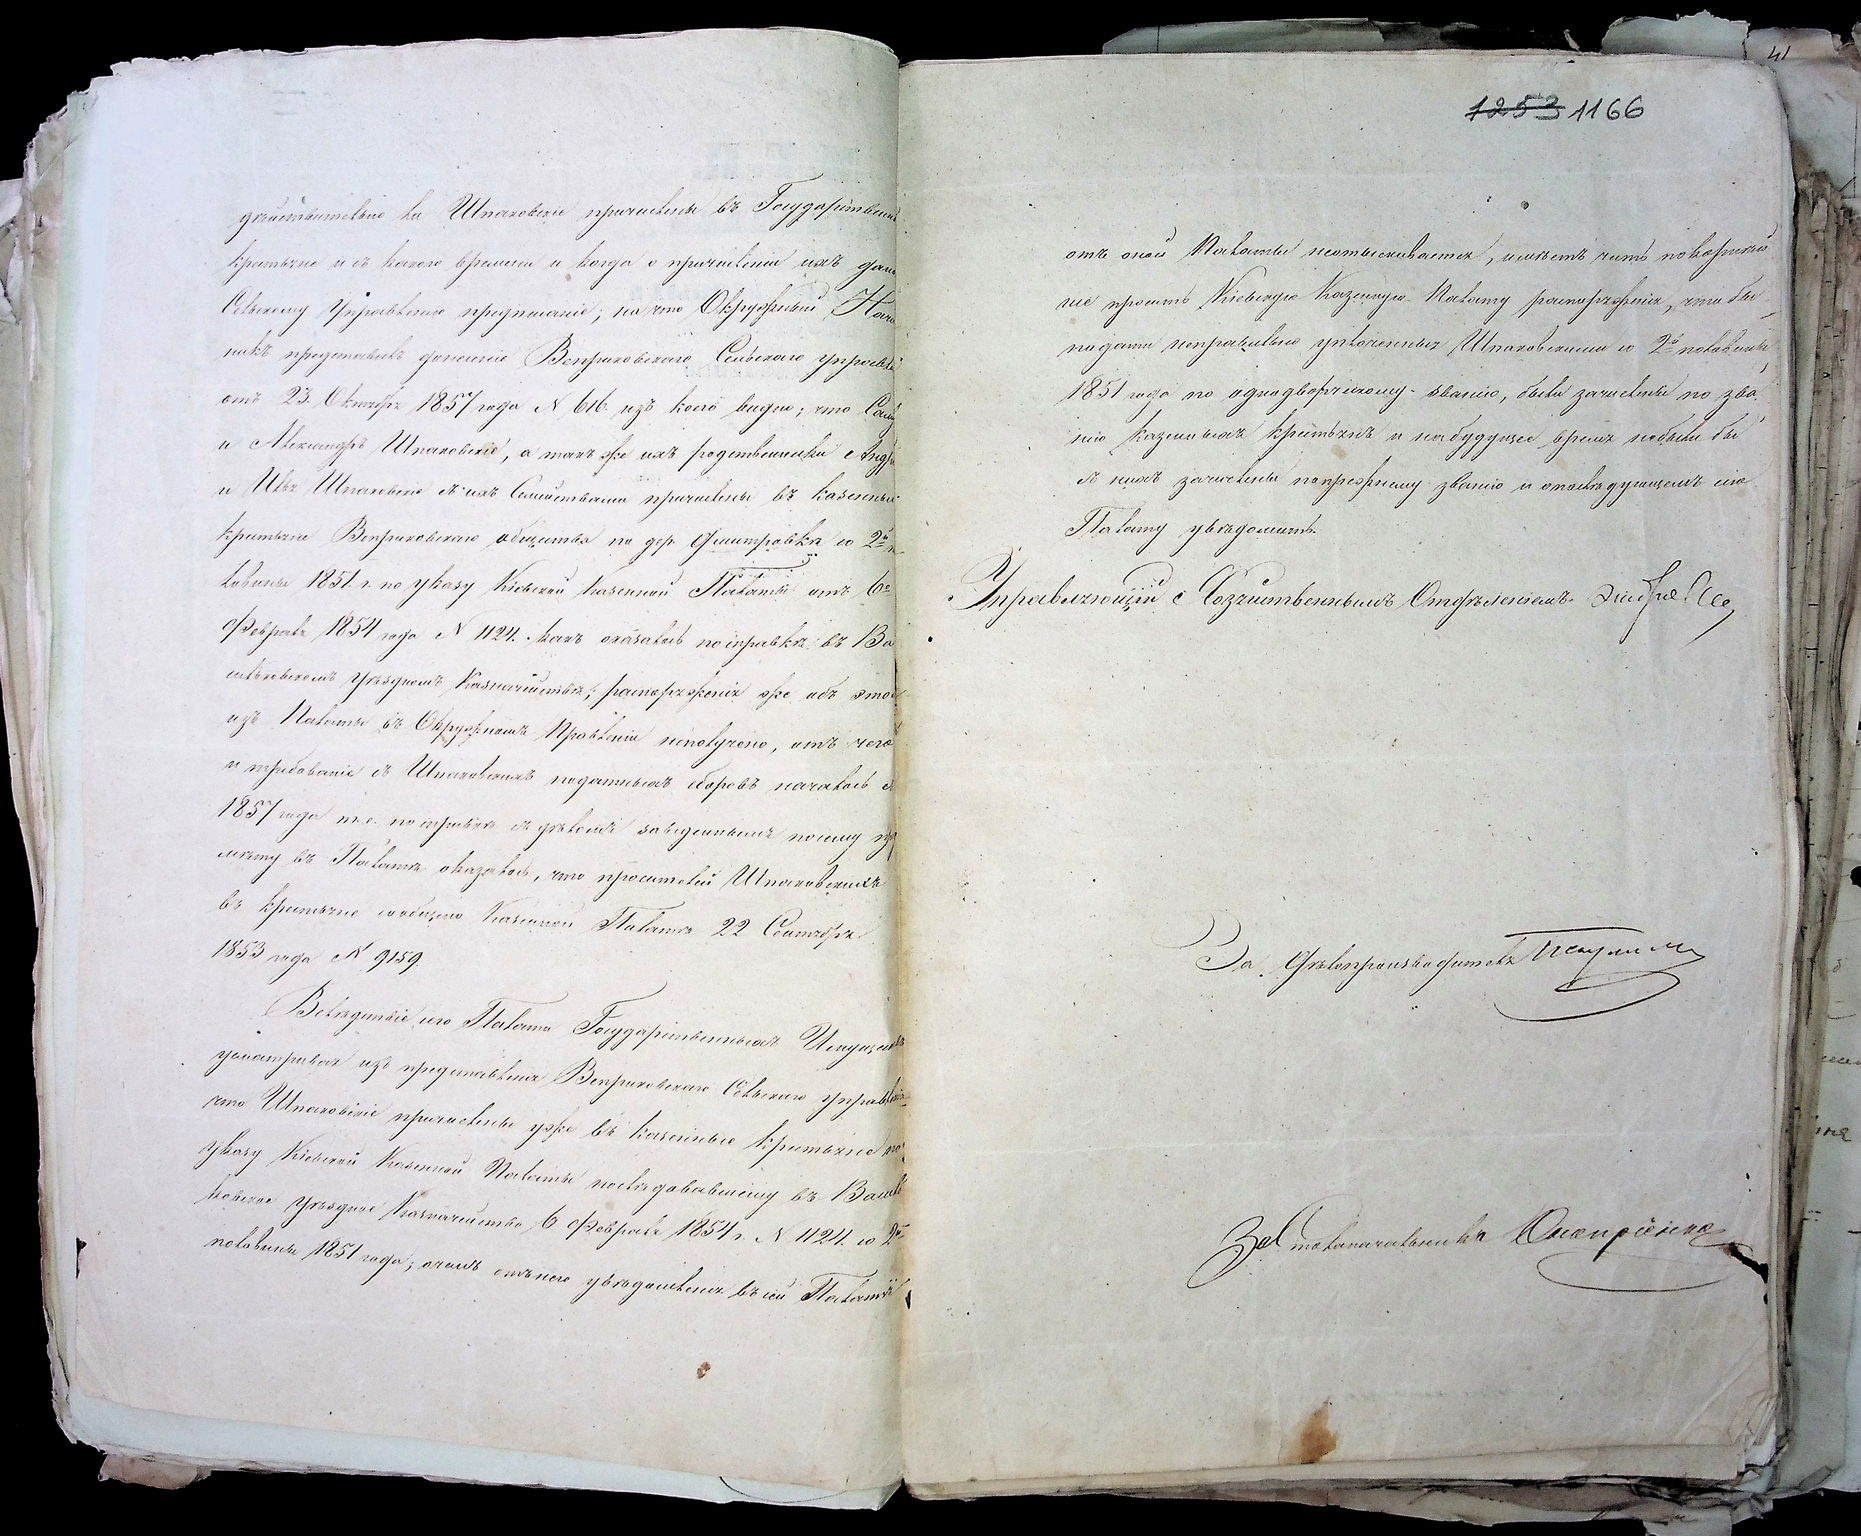 дѣйствительно ли Шпаковскіе причислены въ Государствен
крестьяне и съ какого времени и когда о причисленіи ихъ дан
Сельскому Управленію предписаніе; на что Окружный Нача
никъ представилъ донесеніе Веприковскаго Сельскаго управле
отъ 23 Октября 1857 года N 616. изъ коего видно, что
и Александръ Шпаковскіе, а такъ же ихъ родственники Андр
и Шпаковскіе съ ихъ Семействами причислены въ казенные
крестьяне Веприковскаго общества по дер. Дмитровкѣ со 2й п
ловины 1851 г. по указу Кіевской Казенной Палаты отъ 6го
Февраля 1854 года N 1124. какъ оказалось по справкѣ въ Ва
сильковскомъ уѣздномъ Казначействѣ; распоряженія же объ этом
изъ Палаты въ Окружномъ Правленіи неполучено, отъ чего
и требованіе съ Шпаковскихъ податныхъ сборовъ началось съ
1857 года т.е. по справкѣ съ дѣломъ заведеннымъ по сему пред
мѣту въ Палатѣ оказалось, что просителей Шпаковскихъ
въ крестьяне сообщено Казенной Палатѣ 22 Сентября
1853 года N 9159.
Вслѣдствіе сего Палата Государственныхъ Имуществъ
усматривая изъ представленія Веприковскаго Сельскаго управленія
что Шпаковскіе причислены уже въ казенные крестьяне по
указу Кіевской Казенной Палаты послѣдовавшему въ Василь
ковское уѣздное Казначейство 6 Февраля 1854 г. N 1124. со 2й
половины 1851 года, о чемъ уведомленія въ сей Палатѣ
41
1253 1166
отъ оной Палаты неотыскивается, имѣетъ честь покорнѣй
ше просить Кіевскую Казенную Палату распоряженія, что бы
подати неправильно уплоченныя Шпаковскими со 2й половины
1851 года по однодворческому званію, были зачислены по зва
нію казенныхъ крестьянъ и на будущее время небыли бы
съ нихъ зачислены попрежнему званію и о послѣдующемъ сію
Палату увѣдомить.
Управляющій Хозяйственнымъ Отдѣленіемъ
За Дѣлопроизводителя
За Столоначальника